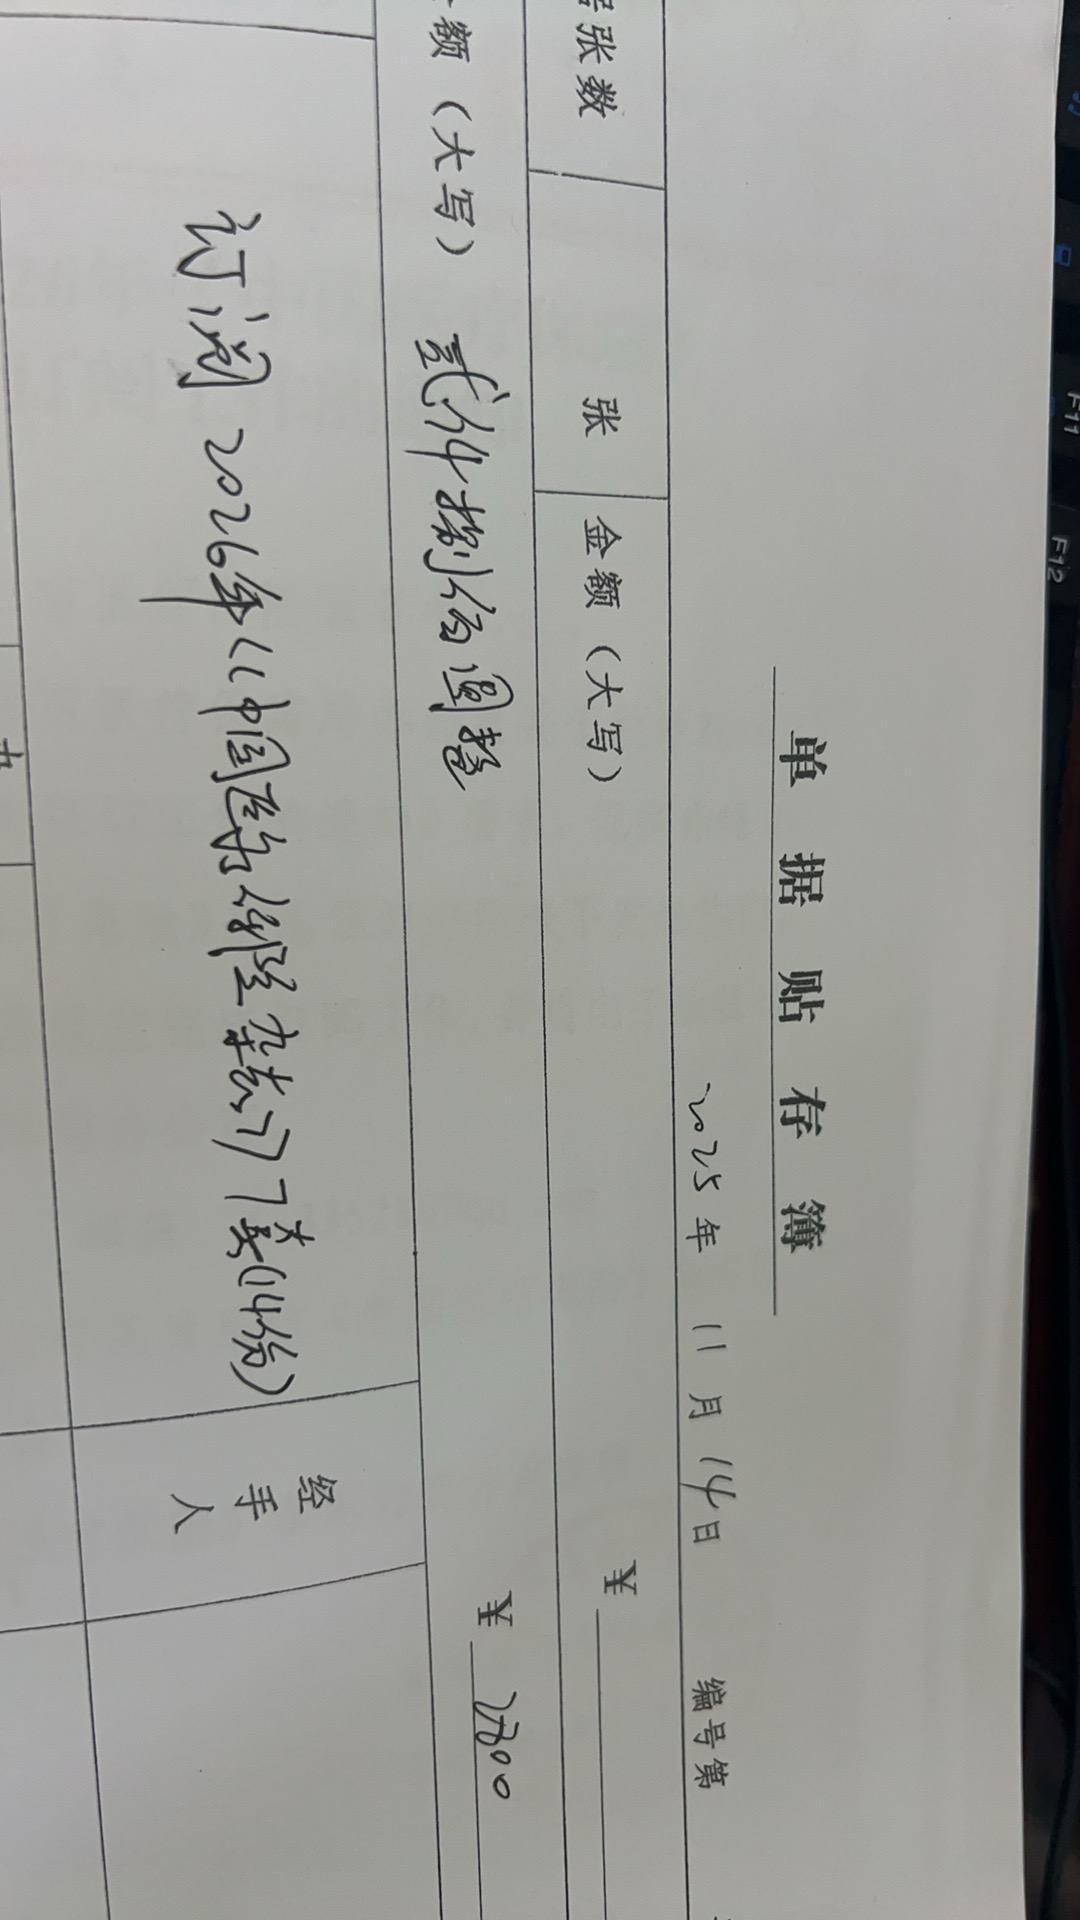 单据贴存簿
2025年 11月 14日 编号第
张数 张 金额（大写） ¥
额（大写） 贰仟捌佰圆整 ¥ 2800
订阅 2026年《中国医药导报杂志》7套(14份)
经手人
F11
F12